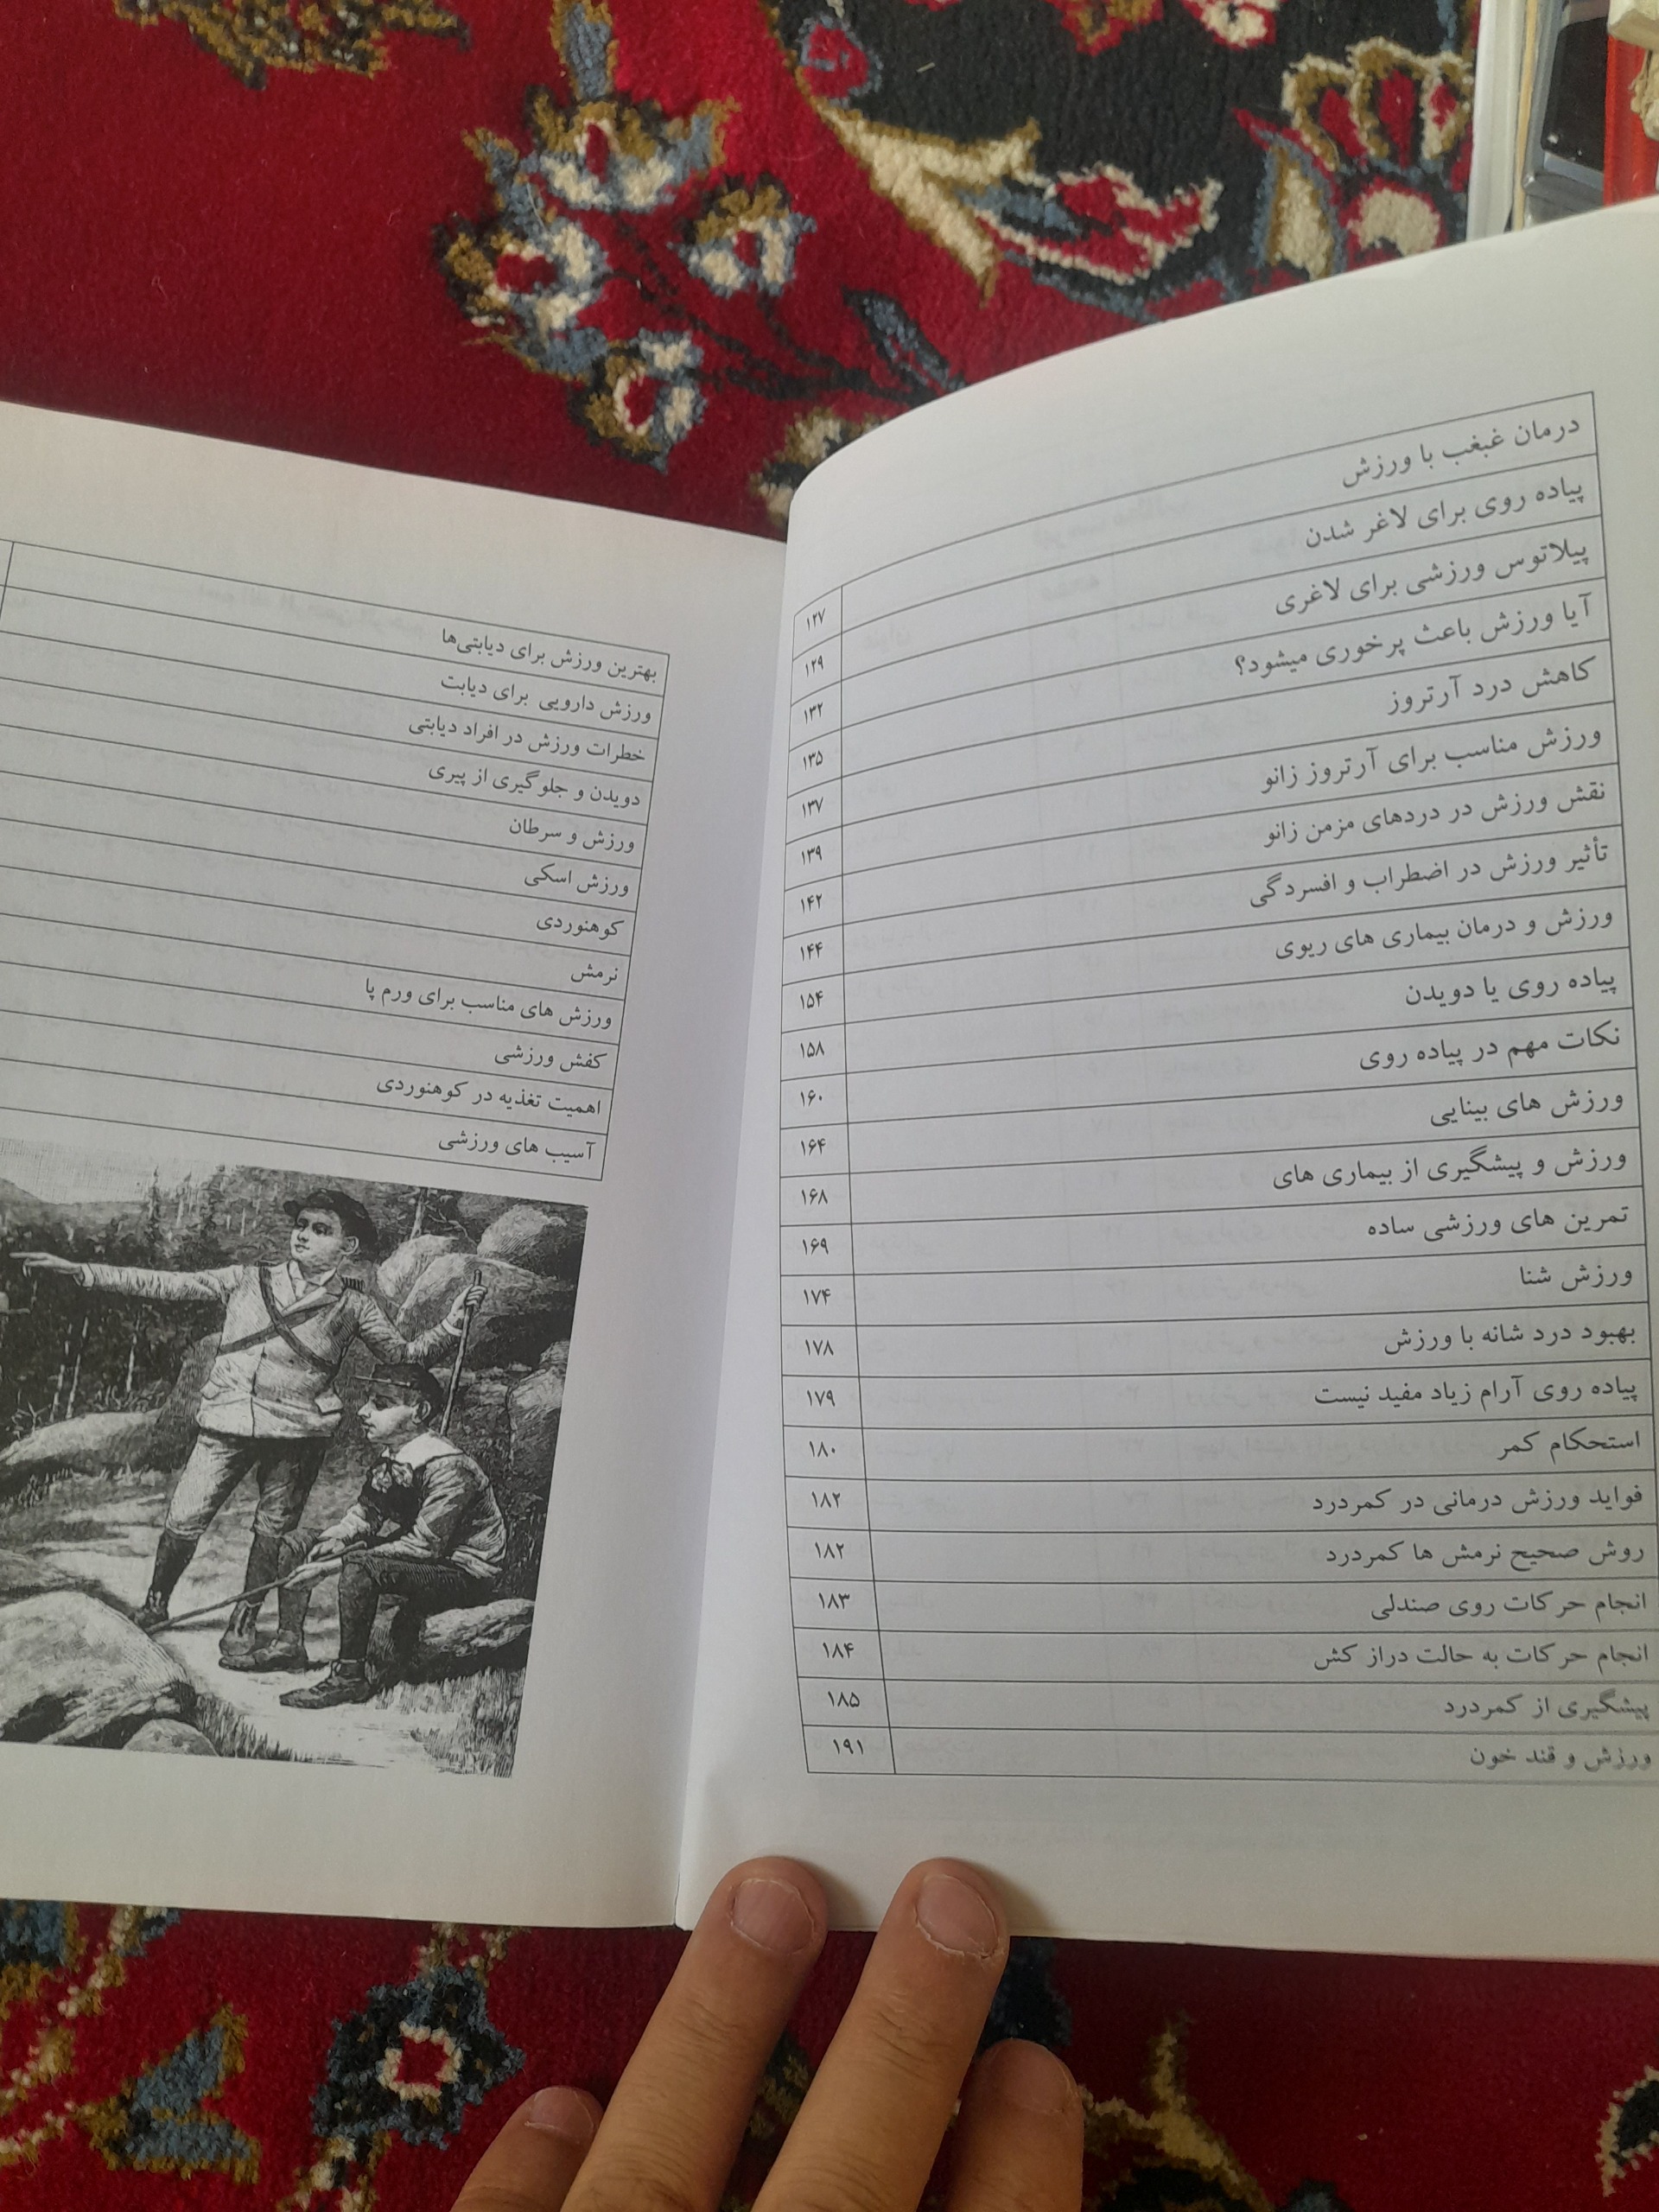 درمان غبغب با ورزش ۱۲۷
پیاده روی برای لاغر شدن ۱۲۹
پیلاتوس ورزشی برای لاغری ۱۳۲
آیا ورزش باعث پرخوری میشود؟ ۱۳۵
کاهش درد آرتروز ۱۳۷
ورزش مناسب برای آرتروز زانو ۱۳۹
نقش ورزش در دردهای مزمن زانو ۱۴۲
تأثیر ورزش در اضطراب و افسردگی ۱۴۴
ورزش و درمان بیماری های ریوی ۱۵۴
پیاده روی یا دویدن ۱۵۸
نکات مهم در پیاده روی ۱۶۰
ورزش های بینایی ۱۶۴
ورزش و پیشگیری از بیماری های ۱۶۸
تمرین های ورزشی ساده ۱۶۹
ورزش شنا ۱۷۴
بهبود درد شانه با ورزش ۱۷۸
پیاده روی آرام زیاد مفید نیست ۱۷۹
استحکام کمر ۱۸۰
فواید ورزش درمانی در کمردرد ۱۸۲
روش صحیح نرمش ها کمردرد ۱۸۲
انجام حرکات روی صندلی ۱۸۳
انجام حرکات به حالت دراز کش ۱۸۴
پیشگیری از کمردرد ۱۸۵
ورزش و قند خون ۱۹۱
بهترین ورزش برای دیابتی‌ها
ورزش دارویی برای دیابت
خطرات ورزش در افراد دیابتی
دویدن و جلوگیری از پیری
ورزش و سرطان
ورزش اسکی
کوهنوردی
نرمش
ورزش های مناسب برای ورم پا
کفش ورزشی
اهمیت تغذیه در کوهنوردی
آسیب های ورزشی